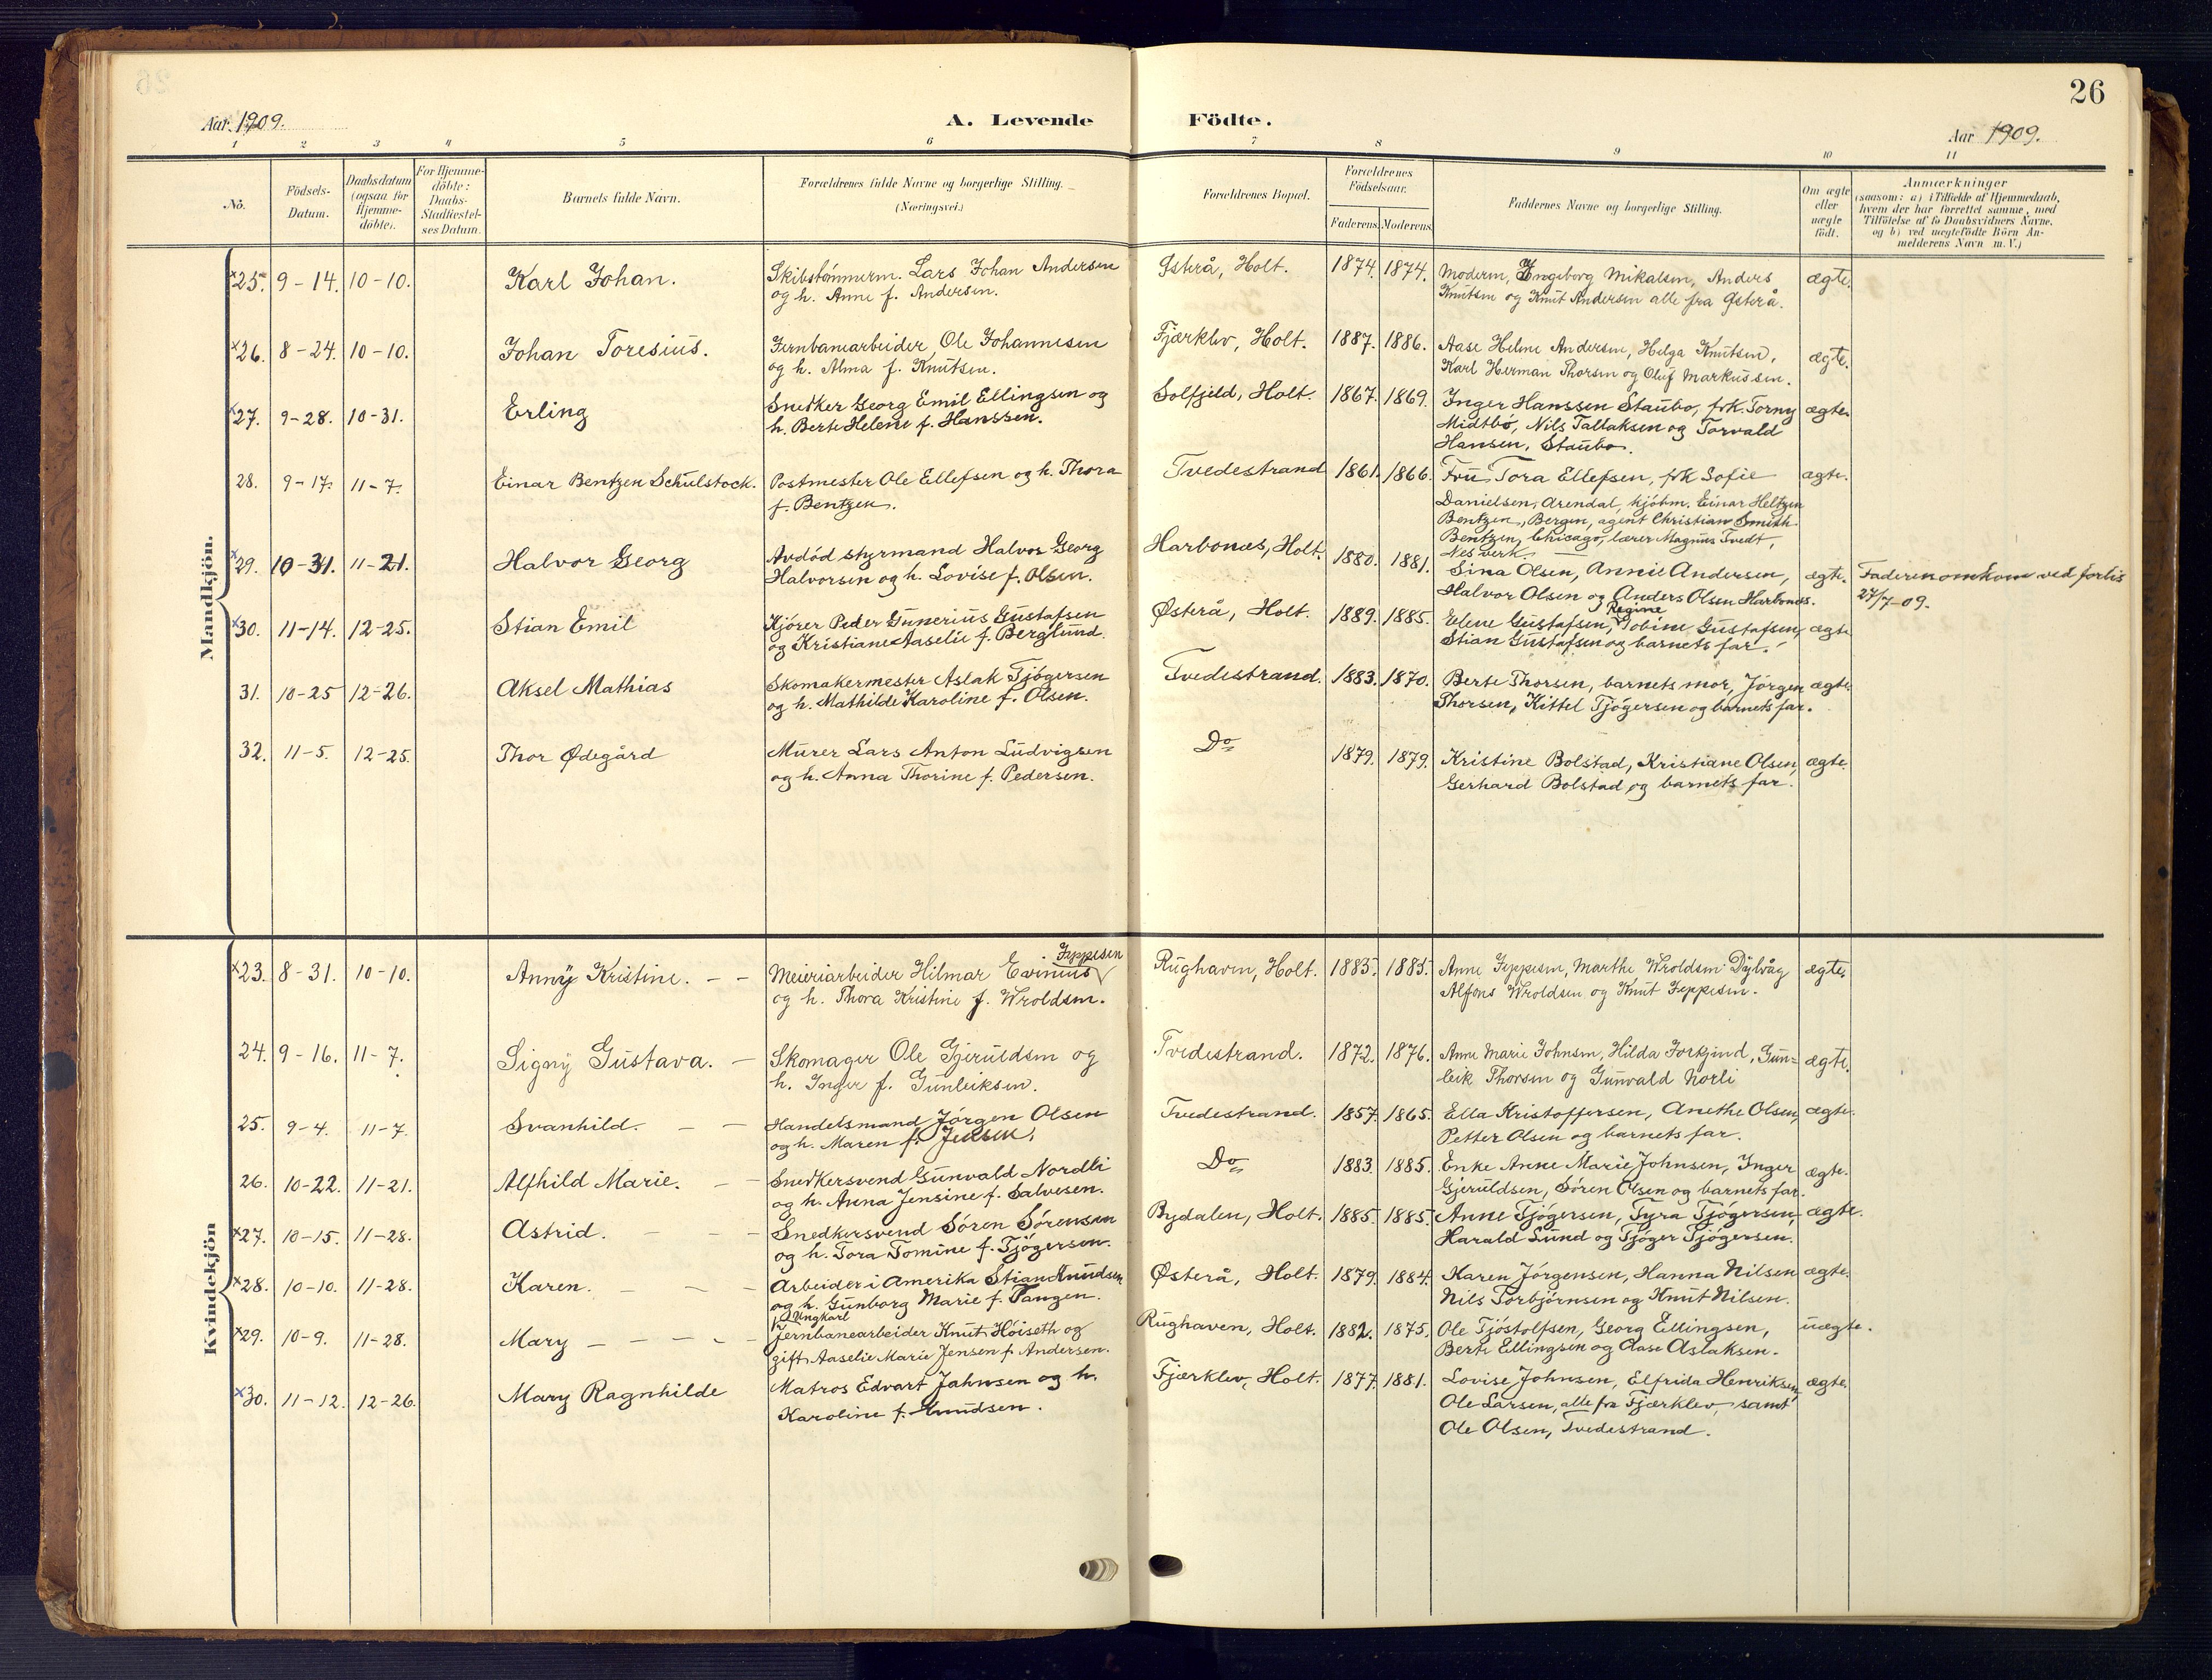 26
Aar 1909.
A. Levende Födte.
Aar 1909.
1 2 3 4 5 6 7 8 9 10 11
No.
Födsels-
Datum.
Daabsdatum
(ogsaa for
Hjemme-
döbte).
For Hjemme-
döbte:
Daabs-
Stadfæstel-
ses Datum.
Barnets fulde Navn.
Forældrenes fulde Navne og borgerlige Stilling.
(Næringsvei.)
Forældrenes Bopæl.
Forældrenes
Födselsaar.
Faderens. Moderens.
Faddernes Navne og borgerlige Stilling.
Om ægte
eller
uægte
födt.
Anmærkninger
(saasom: a) i Tilfælde af Hjemmedaab,
hvem der har forrettet samme, med
Tilföielse af to Daabsvidners Navne,
og b) ved uægtefödte Börn An-
melderens Navn m. V.)
Mandkjön.
×25. 9-14. 10-10. Karl Johan. Skibstömmerm. Lars Johan Andersen Østerå, Holt. 1874. 1874. Moderen, Ingeborg Mikalsen, Anders ægte.
og h. Anne f. Andersen. Knutsen og Knut Andersen alle fra Østerå.
×26. 8-24. 10-10. Johan Toresius. Jernbanearbeider Ole Johannesen Fjærklev, Holt. 1887. 1886. Aase Helene Andersen, Helga Knutsen, ægte.
og h. Alma f. Knutsen. Karl Herman Thorsen og Oluf Markussen.
×27. 9-28. 10-31. Erling Snedker Georg Emil Ellingsen og Solfjeld, Holt. 1867. 1869. Inger Hanssen Staubo, frk. Torny ægte.
h. Berte Helene f. Hanssen. Midtbö, Nils Tallaksen og Torvald
Hansen, Staubo.
28. 9-17. 11-7. Einar Bentzen Schulstock. Postmester Ole Ellefsen og h. Thora Tvedestrand 1861. 1866. Fru Tora Ellefsen, frk Sofie ægte.
f. Bentzen. Danielsen, Arendal, kjöbm. Einar Heltzen
Bentzen, Bergen, agent Christian Smith
Bentzen, Chicago, lærer Magnus Tvedt,
Nes verk
×29. 10-31. 11-21. Halvor Georg Avdöd styrmand Halvor Georg Harbonæs, Holt. 1880. 1881. Sina Olsen, Annie Andersen, ægte. Faderen omkom ved forlis
Halvorsen og h. Lovise f. Olsen. Halvor Olsen og Anders Olsen Harbonæs. 27/7-09.
×30. 11-14. 12-25. Stian Emil Kjörer Peder Gunerius Gustafsen Østerå, Holt. 1889. 1885. Elene Gustafsen, Regine Tobine Gustafsen, ægte
og Kristiane Aaselie f. Berglund. Stian Gustafsen og barnets far.
31. 10-25 12-26. Aksel Mathias Skomakermester Aslak Tjögersen Tvedestrand. 1883. 1870. Berte Thorsen, barnets mor, Jörgen ægte.
og h. Mathilde Karoline f. Olsen. Thorsen, Kittel Tjögersen og barnets far.
32. 11-5. 12-25. Thor Ødegård Murer Lars Anton Ludvigsen Do 1879. 1879. Kristine Bolstad, Kristiane Olsen, ægte.
og h. Anna Thorine f. Pedersen. Gerhard Bolstad og barnets far.
Kvindekjön
×23. 8-31. 10-10. Anny Kristine. Meieriarbeider Hilmar Evinius Jeppesen Rughavn, Holt. 1885. 1885. Anne Jeppesen, Marthe Wroldsen Dylvåg ægte.
og h. Thora Kristine f. Wroldsen. Alfons Wroldsen og Knut Jeppesen.
24. 9-16. 11-7. Signy Gustava. Skomager Ole Gjeruldsen og Tvedestrand. 1872. 1876. Anne Marie Johnsen, Hilda, Gun- ægte.
h. Inger f. Gunleiksen. leik Thorsen og Gunvald Norli
25. 9-4. 11-7 Svanhild. Handelsmand Jörgen Olsen Tvedestrand. 1857. 1865. Ella Kristoffersen, Anethe Olsen, ægte.
og h. Maren f. Jensen. Petter Olsen og barnets far.
26. 10-22. 11-21. Alfhild Marie. Snedkersvend Gunvald Nordli Do 1883. 1885. Enke Anne Marie Johnsen, Inger ægte.
og h. Anna Jensine f. Salvesen. Gjeruldsen, Sören Olsen og barnets far.
×27. 10-15. 11-28. Astrid. Snedkersvend Sören Sörensen Bydalen, Holt. 1885. 1885. Anne Tjögersen, Tyra Tjögersen, ægte.
og h. Tora Tomine f. Tjögersen. Harald Lund og Tjöger Tjögersen.
×28. 10-10. 11-28. Karen. Arbeider i Amerika Stian Knudsen Østerå, Holt. 1879. 1884. Karen Jörgensen, Hanna Nilsen ægte.
og h. Gunborg Marie f. Tangen. Nils Torbjörnsen og Knut Nilsen.
×29. 10-9. 11-28. Mary Ungkarl jernbanearbeider Knut Höiseth og Rughaven, Holt. 1882. 1875. Ole Tjöstolfsen, Georg Ellingsen, uægte.
gift Aaselie Marie Jensen f. Andersen. Berte Ellingsen og Aase Aslaksen.
×30. 11-12. 12-26. Mary Ragnhilde Matros Edvart Jahnsen og h. Fjærklev, Holt. 1877. 1881. Lovise Johnsen, Elfrida Henriksen, ægte.
Karoline f. Knudsen. Ole Larsen, alle fra Fjærklev, samt
Ole Olsen, Tvedestrand.